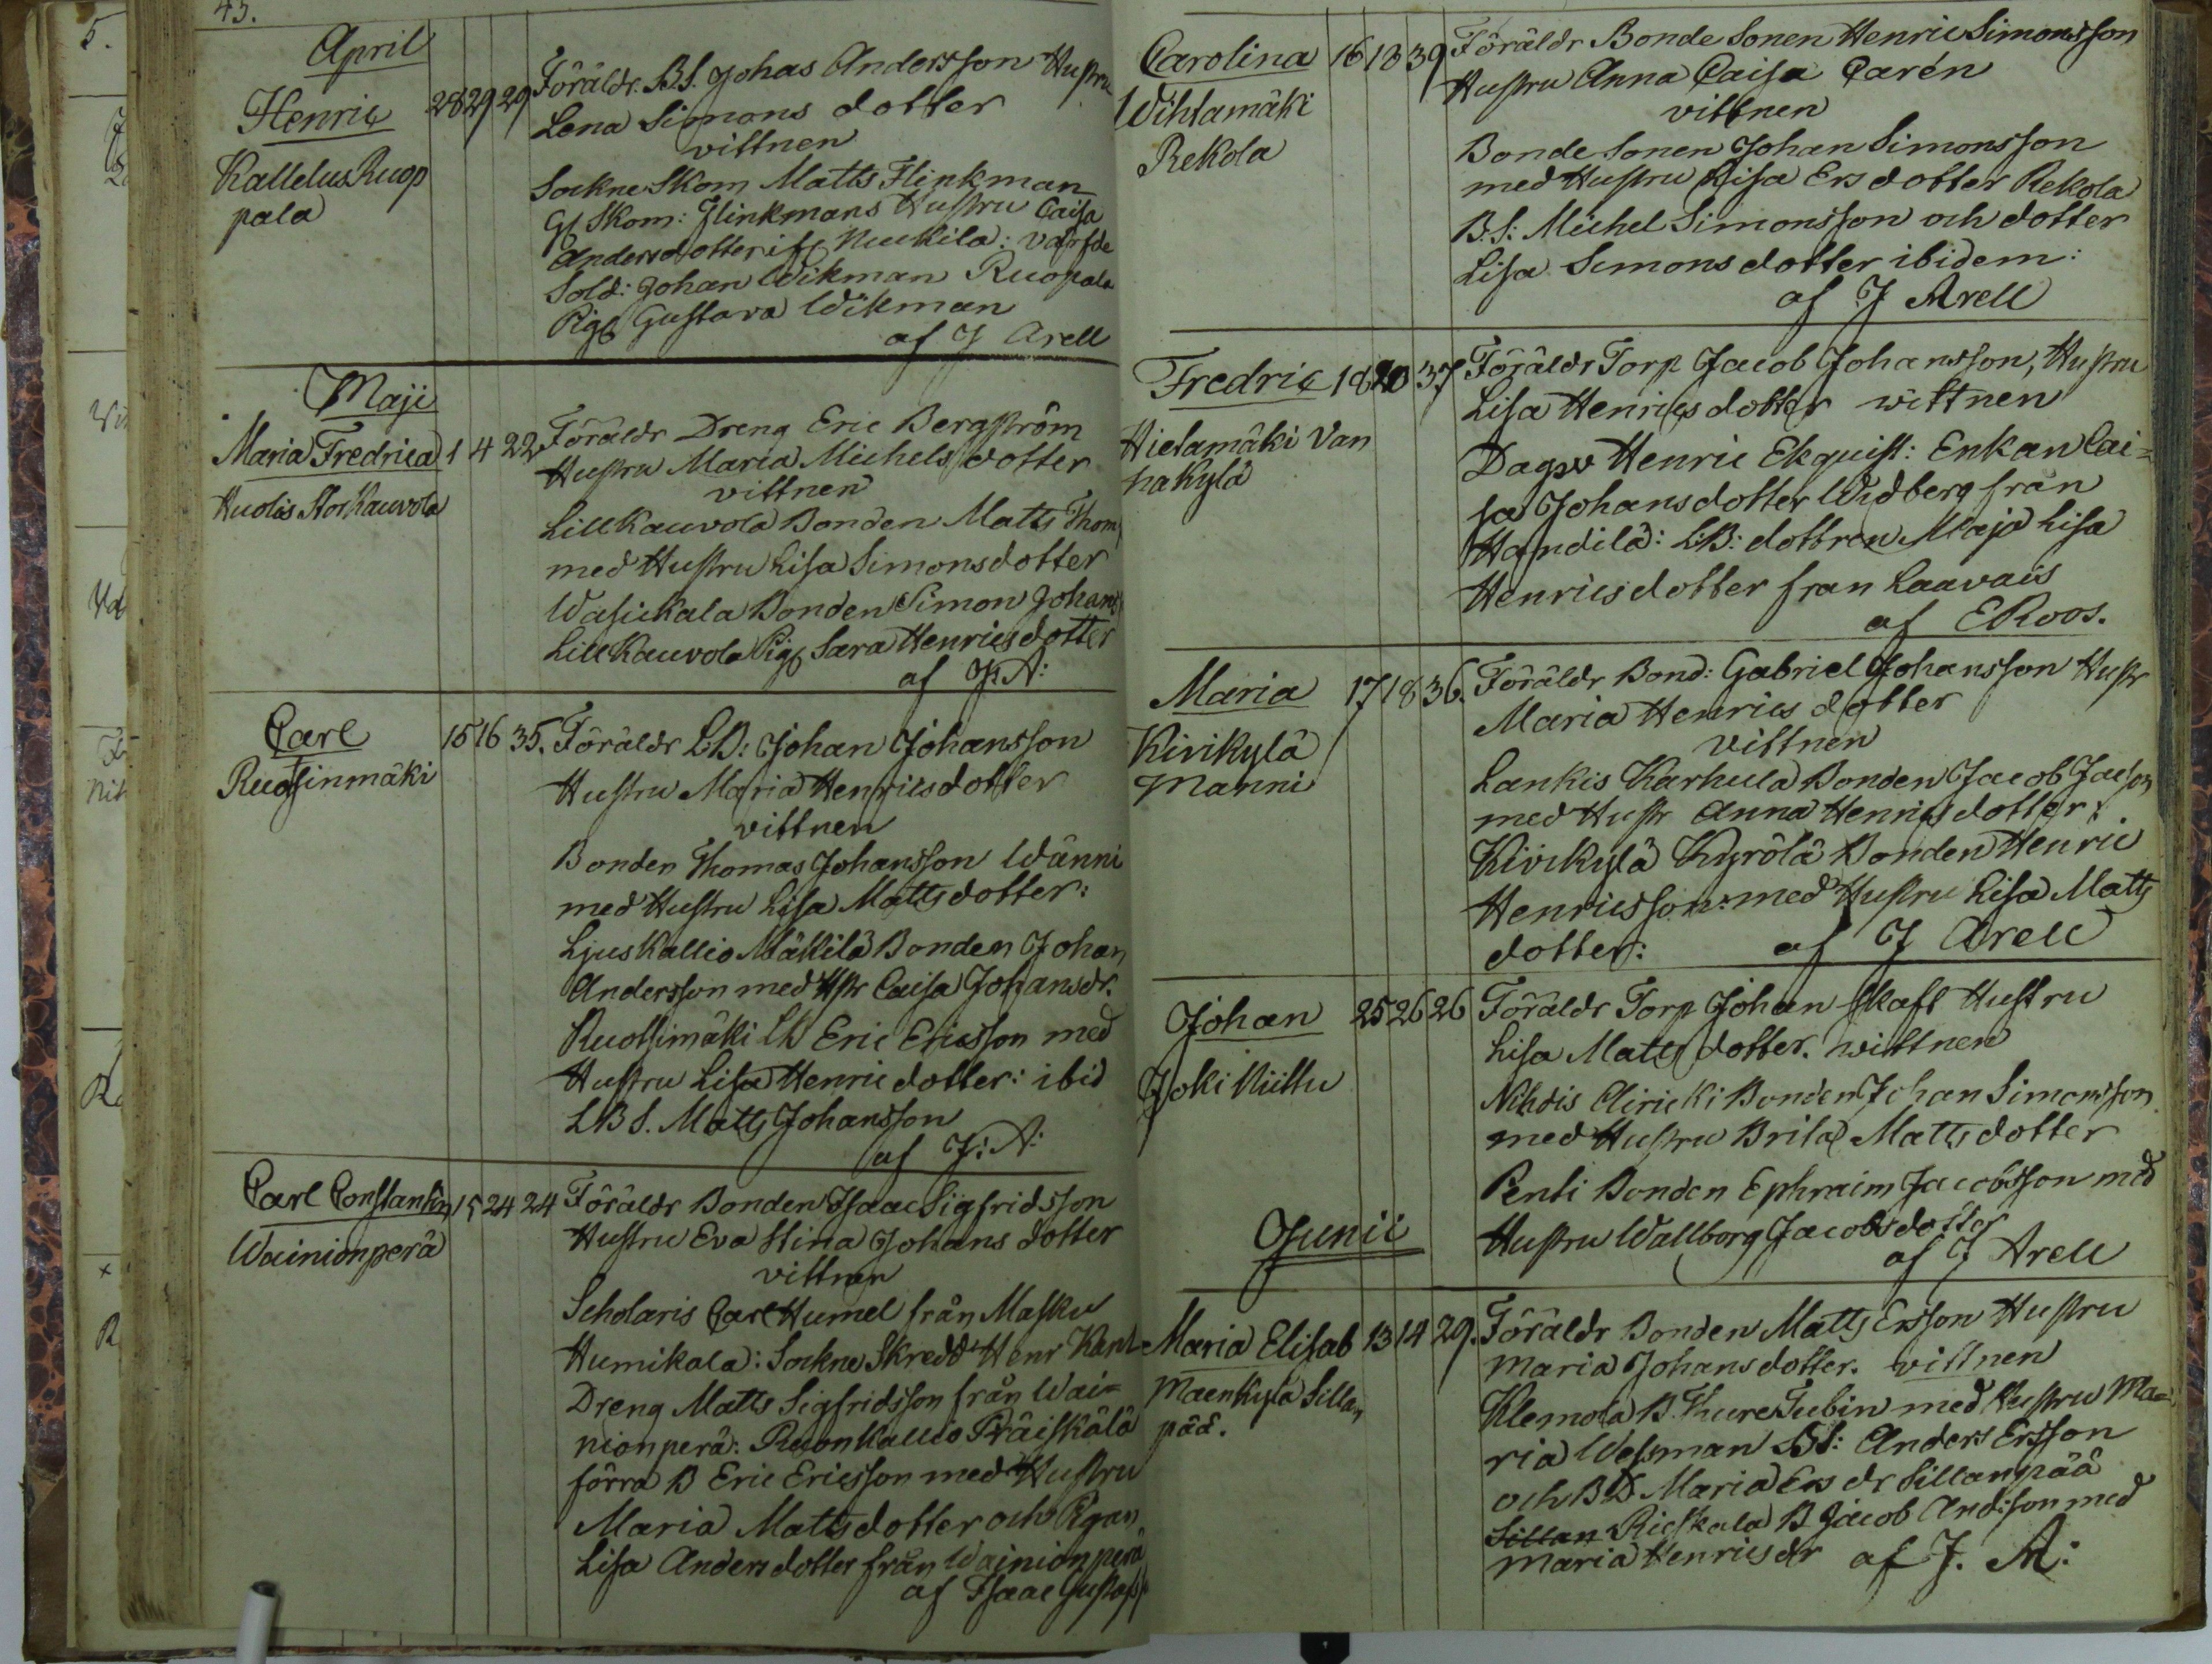 43.
April
Henric 28 29 29 Föräldr. B.S. Johas Andersson Hustru
Lena Simons dotter
vittnen
Kallelus Ruop
pala
Sockne Skom Matts Flinkman
Gl Skom: Flinkmans Hustru Caisa
Andersdotter ifr Nuckila:
Sold: Johan Wikman Ruopala
Pig Gustava Wikman
af J Arell
Maji
Maria Fredrica 1 4 22 Föräldr Dreng Eric Bergström
Hustru Maria Michels dotter
vittnen
Huolis Storkauvola
Lillkauvola Bonden Matts Thom
med Hustru Lisa Simonsdotter
Wasickala Bonden Simon Johans
Lillkauvola Pig Sara Henricsdotter
af J. A:
Carl 15 16 35. Föräldr L.B: Johan Johansson
Ruotsinmäki
Hustru Maria Henricsdotter
vittnen
Bonden Thomas Johansson Wänni
med Hustru Lisa Mattsdotter:
Ljuskallio Mäkilä Bonden Johan
Andersson med Hstr Caisa Johansdr.
Ruotsimäki LB Eric Ericsson med
Hustru Lisa Henricdotter: ibid
LBS. Matts Johansson
af J: A:
Carl Constantin 15 24 24 Föräldr Bonden Isaac Sigfridsson
Wainionperä
Hustru Eva Stina Johans dotter
vittnen
Scholaris Carl Humel från Masku
Humikala: Sockne Skredd Henr Kant
Dreng Matts Sigfridsson från Wai=
nionperä: Ruonkallio Präiskälä
förra B Eric Ericsson med Hustru
Maria Mattsdotter och Pigan
Lisa Andersdotter från Wainionperä
af Isaac Gustafss
Carolina 16 18 39 Föräldr Bonde Sonen Henric Simonsson
Hustru Anna Caisa Carén
vittnen
Wihtamäki
Rekola
Bonde Sonen Johan Simonsson
med Hustru Lisa Ersdotter Rekola
B.S: Michel Simonsson och dotter
Lisa Simonsdotter ibidem:
af J Arell
Fredric 18 20 37 Föräldr Torp Jacob Johansson, Hustru
Lisa Henricsdotter wittnen
Hietamäki Van
hakylä
Dagsv Henric Ekquist: Enkan Cai=
sa Johansdotter Widberg från
Handilä: LB: dottren Maja Lisa
Henricsdotter fran Laavais
af E Roos.
Maria 17 18 36. Föräldr Bond: Gabriel Johansson Hustr
Maria Henrics dotter
vittnen
Kivikylä
Manni
Lankis Karhula Bonden Jacob Jacson
med Hustr Anna Henricsdotter:
Kivikylä Kyrölä Bonden Henric
Henricsson: med Hustru Lisa Matts
dotter: af J Arell
Johan 25 26 26 Föräldr Torp Johan Skaft Hustru
Lisa Mattsdotter. wittnen
Joki Kiittu
Nihdis Airicki Bonden Johan Simonsson
med Hustru Brita Mattsdotter
Penti Bonden Ephraim Jacobsson med
Hustru Wallborg Jacobsdotter
af J Arell
Junii
Maria Elisab 13 14 29. Föräldr Bonden Matts Ersson Hustru
Maria Johansdotter. vittnen
Maenkylä Sillan
pää.
Klemola B. Thure Tubin med Hustru Ma=
ria Wessman BS: Anders Ersson
och BD Maria Ers dr Sillanpää
Sillan Rieskala B Jacob Andsson med
Maria Henricsdr af J. A: